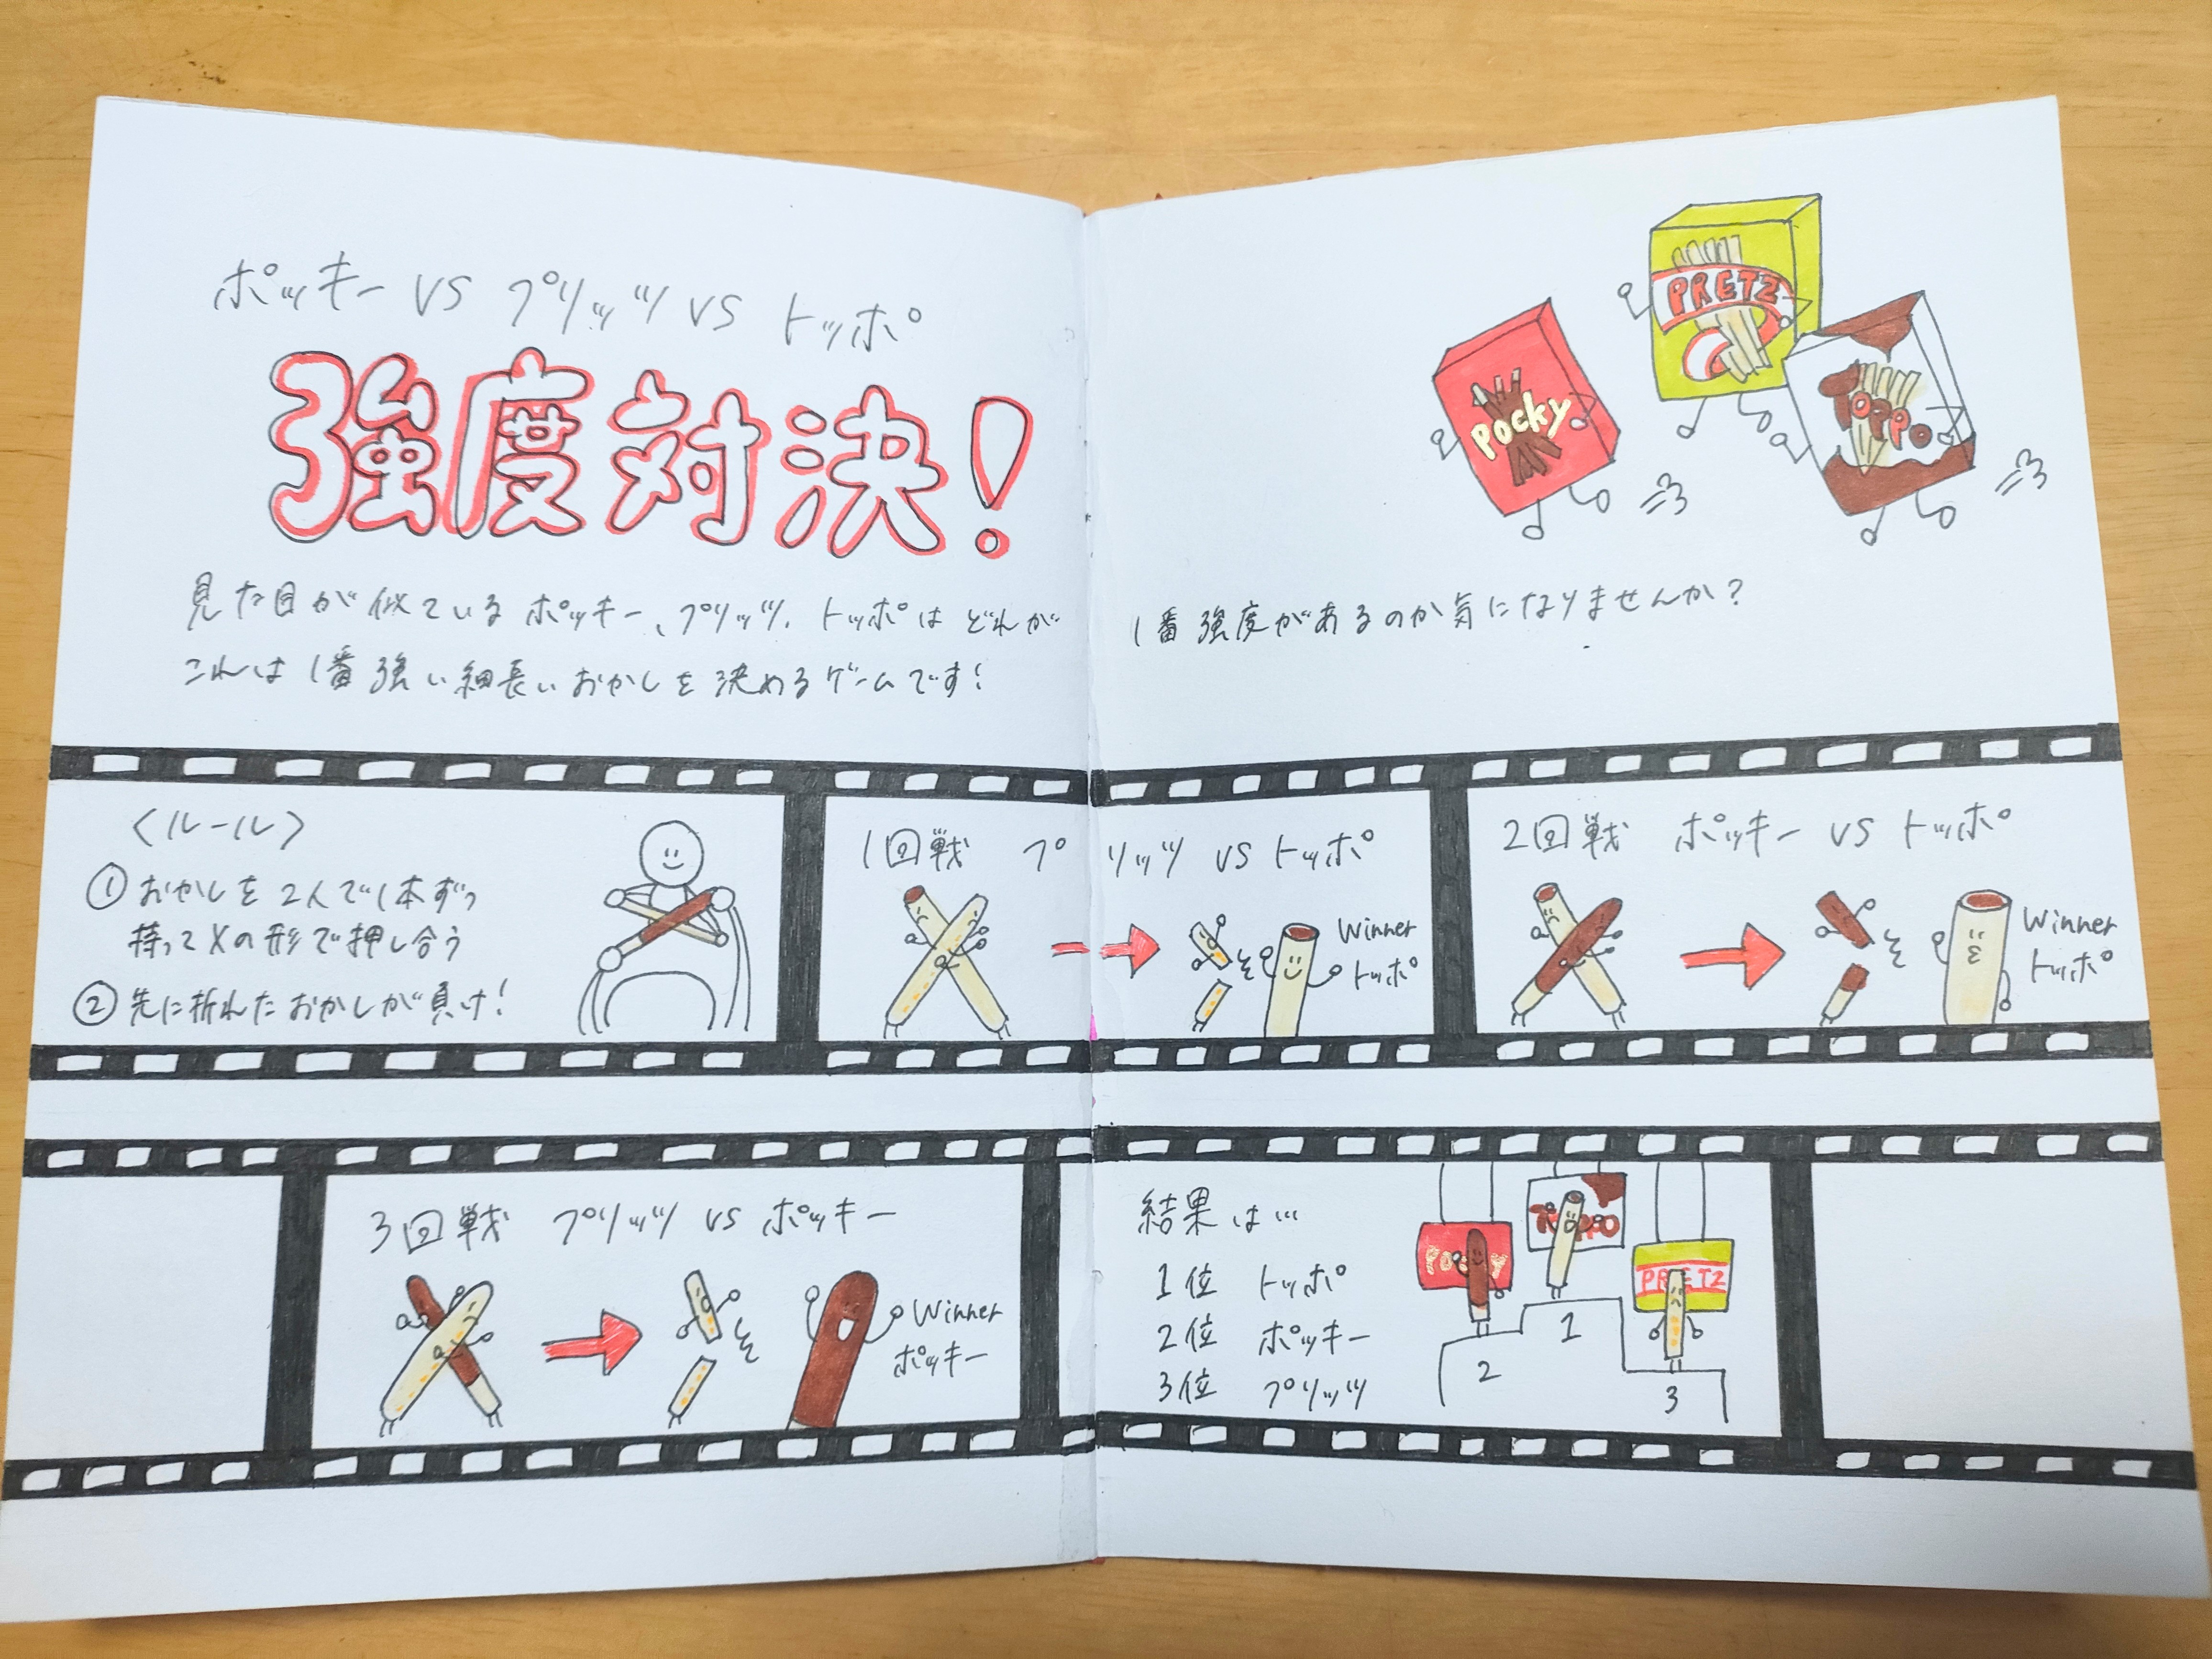 ポッキー VS プリッツ VS トッポ
強度対決!
PRETZ
pocky
TOPPO
見た目が似ているポッキー、プリッツ、トッポはどれが1番強度があるのか気になりませんか?
これは1番強い細長いおかしを決めるゲームです!
<ルール>
①おかしを2人で1本ずつ
持ってXの形で押し合う
②先に折れたおかしが負け!
1回戦 プリッツ VS トッポ
Winner
トッポ
2回戦 ポッキー VS トッポ
Winner
トッポ
3回戦 プリッツ VS ポッキー
Winner
ポッキー
結果は…
1位 トッポ
2位 ポッキー
3位 プリッツ
POCKY
TOPPO
PRETZ
1
2
3